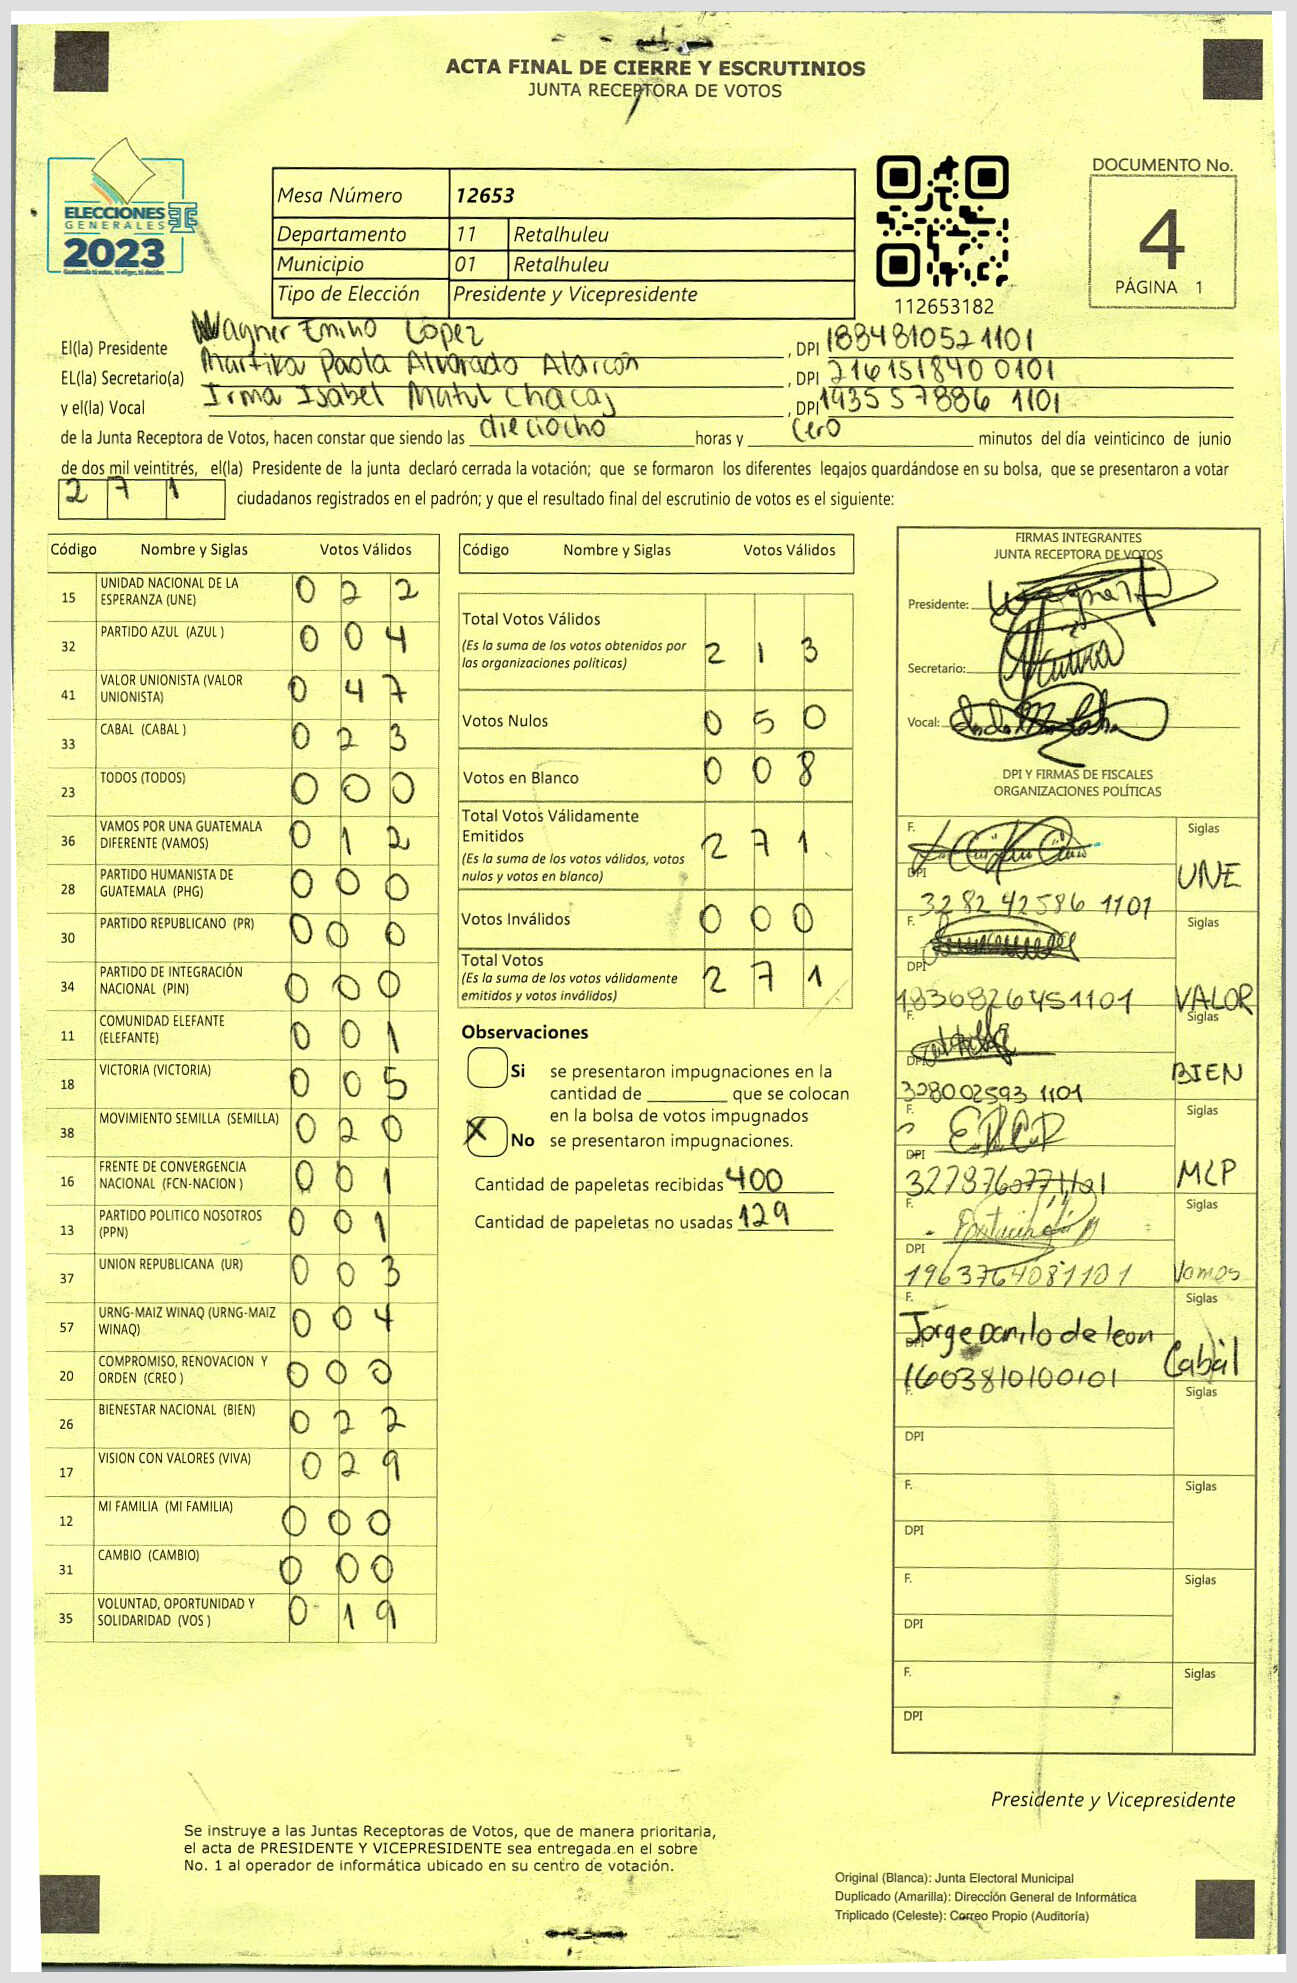 ACTA FINAL DE CIERRE Y ESCRUTINIOS
JUNTA RECEPTORA DE VOTOS
ELECCIONES
GENERALES
2023
Guatemala tú votas, tú eliges, tú decides
Mesa Número 12653
Departamento 11 Retalhuleu
Municipio 01 Retalhuleu
Tipo de Elección Presidente y Vicepresidente
112653182
DOCUMENTO No.
4
PÁGINA 1
El(la) Presidente Wagner Emilio López , DPI 188481052 1101
EL(la) Secretario(a) Paola Alvarado Alarcón , DPI 216151840 0101
y el(la) Vocal Irma Isabel Matul Chacaj , DPI 193557886 1101
de la Junta Receptora de Votos, hacen constar que siendo las dieciocho horas y cero minutos del día veinticinco de junio
de dos mil veintitrés, el(la) Presidente de la junta declaró cerrada la votación; que se formaron los diferentes legajos guardándose en su bolsa, que se presentaron a votar
2 7 1 ciudadanos registrados en el padrón; y que el resultado final del escrutinio de votos es el siguiente:
Código Nombre y Siglas Votos Válidos
15 UNIDAD NACIONAL DE LA ESPERANZA (UNE) 0 2 2
32 PARTIDO AZUL (AZUL ) 0 0 4
41 VALOR UNIONISTA (VALOR UNIONISTA) 0 4 7
33 CABAL (CABAL ) 0 2 3
23 TODOS (TODOS) 0 0 0
36 VAMOS POR UNA GUATEMALA DIFERENTE (VAMOS) 0 1 2
28 PARTIDO HUMANISTA DE GUATEMALA (PHG) 0 0 0
30 PARTIDO REPUBLICANO (PR) 0 0 0
34 PARTIDO DE INTEGRACIÓN NACIONAL (PIN) 0 0 0
11 COMUNIDAD ELEFANTE (ELEFANTE) 0 0 1
18 VICTORIA (VICTORIA) 0 0 5
38 MOVIMIENTO SEMILLA (SEMILLA) 0 2 0
16 FRENTE DE CONVERGENCIA NACIONAL (FCN-NACION ) 0 0 1
13 PARTIDO POLITICO NOSOTROS (PPN) 0 0 1
37 UNION REPUBLICANA (UR) 0 0 3
57 URNG-MAIZ WINAQ (URNG-MAIZ WINAQ) 0 0 4
20 COMPROMISO, RENOVACION Y ORDEN (CREO ) 0 0 0
26 BIENESTAR NACIONAL (BIEN) 0 2 2
17 VISION CON VALORES (VIVA) 0 2 9
12 MI FAMILIA (MI FAMILIA) 0 0 0
31 CAMBIO (CAMBIO) 0 0 0
35 VOLUNTAD, OPORTUNIDAD Y SOLIDARIDAD (VOS ) 0 1 9
Código Nombre y Siglas Votos Válidos
Total Votos Válidos
(Es la suma de los votos obtenidos por las organizaciones políticas) 2 1 3
Votos Nulos 0 5 0
Votos en Blanco 0 0 8
Total Votos Válidamente Emitidos
(Es la suma de los votos válidos, votos nulos y votos en blanco) 2 7 1
Votos Inválidos 0 0 0
Total Votos
(Es la suma de los votos válidamente emitidos y votos inválidos) 2 7 1
Observaciones
Si se presentaron impugnaciones en la
cantidad de ________ que se colocan
en la bolsa de votos impugnados
X No se presentaron impugnaciones.
Cantidad de papeletas recibidas 400
Cantidad de papeletas no usadas 129
FIRMAS INTEGRANTES
JUNTA RECEPTORA DE VOTOS
Presidente:
Secretario:
Vocal:
DPI Y FIRMAS DE FISCALES
ORGANIZACIONES POLÍTICAS
F. Siglas
DPI 328242586 1101 UNE
F. Siglas
DPI 1830826451101 VALOR
F. Siglas
DPI 328002593 1101 BIEN
F. Siglas
DPI MLP
F. Siglas
DPI 1963764081101 Vamos
F. Jorge Danilo de leon Siglas
DPI 1603810100101 Cabal
F. Siglas
DPI
F. Siglas
DPI
F. Siglas
DPI
F. Siglas
DPI
Presidente y Vicepresidente
Se instruye a las Juntas Receptoras de Votos, que de manera prioritaria,
el acta de PRESIDENTE Y VICEPRESIDENTE sea entregada en el sobre
No. 1 al operador de informática ubicado en su centro de votación.
Original (Blanca): Junta Electoral Municipal
Duplicado (Amarilla): Dirección General de Informática
Triplicado (Celeste): Correo Propio (Auditoría)